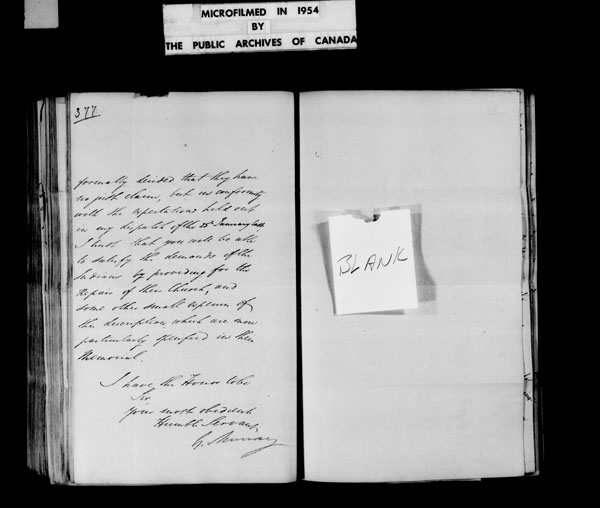 MICROFILMED IN 1954
BY
THE PUBLIC ARCHIVES OF CANADA
377
formally decided that they have
no just claim, but in conformity
with the expectations held out
in my dispatch of the 25th January last
I trust that you will be able
to satisfy the demands of the
Indians by providing for the
Repair of their Church, and
some other small expenses of
this description which are more
particularly specified in their
Memorial.
I have the Honor to be
Sir
Your most obedient
Humble Servant,
G. Murray
BLANK